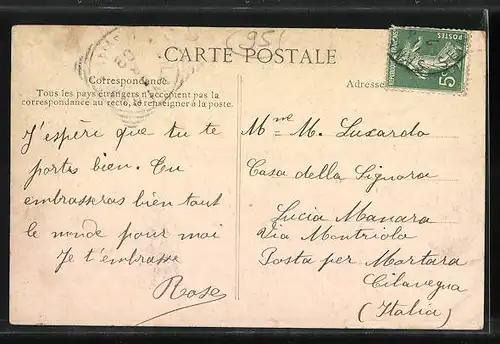 (95)
CARTE POSTALE
Correspondance
Tous les pays étrangers n'acceptent pas la
correspondance au recto, se renseigner à la poste.
J'espère que tu te
portes bien. Tu
embrasseras bien tout
le monde pour moi
Je t'embrasse
Rose
Adresse
5c
Mme M. Luxardo
Casa della Signora
Lucia Manara
Via Montriolo
Posta per Mortara
Cilavegna
(Italia)